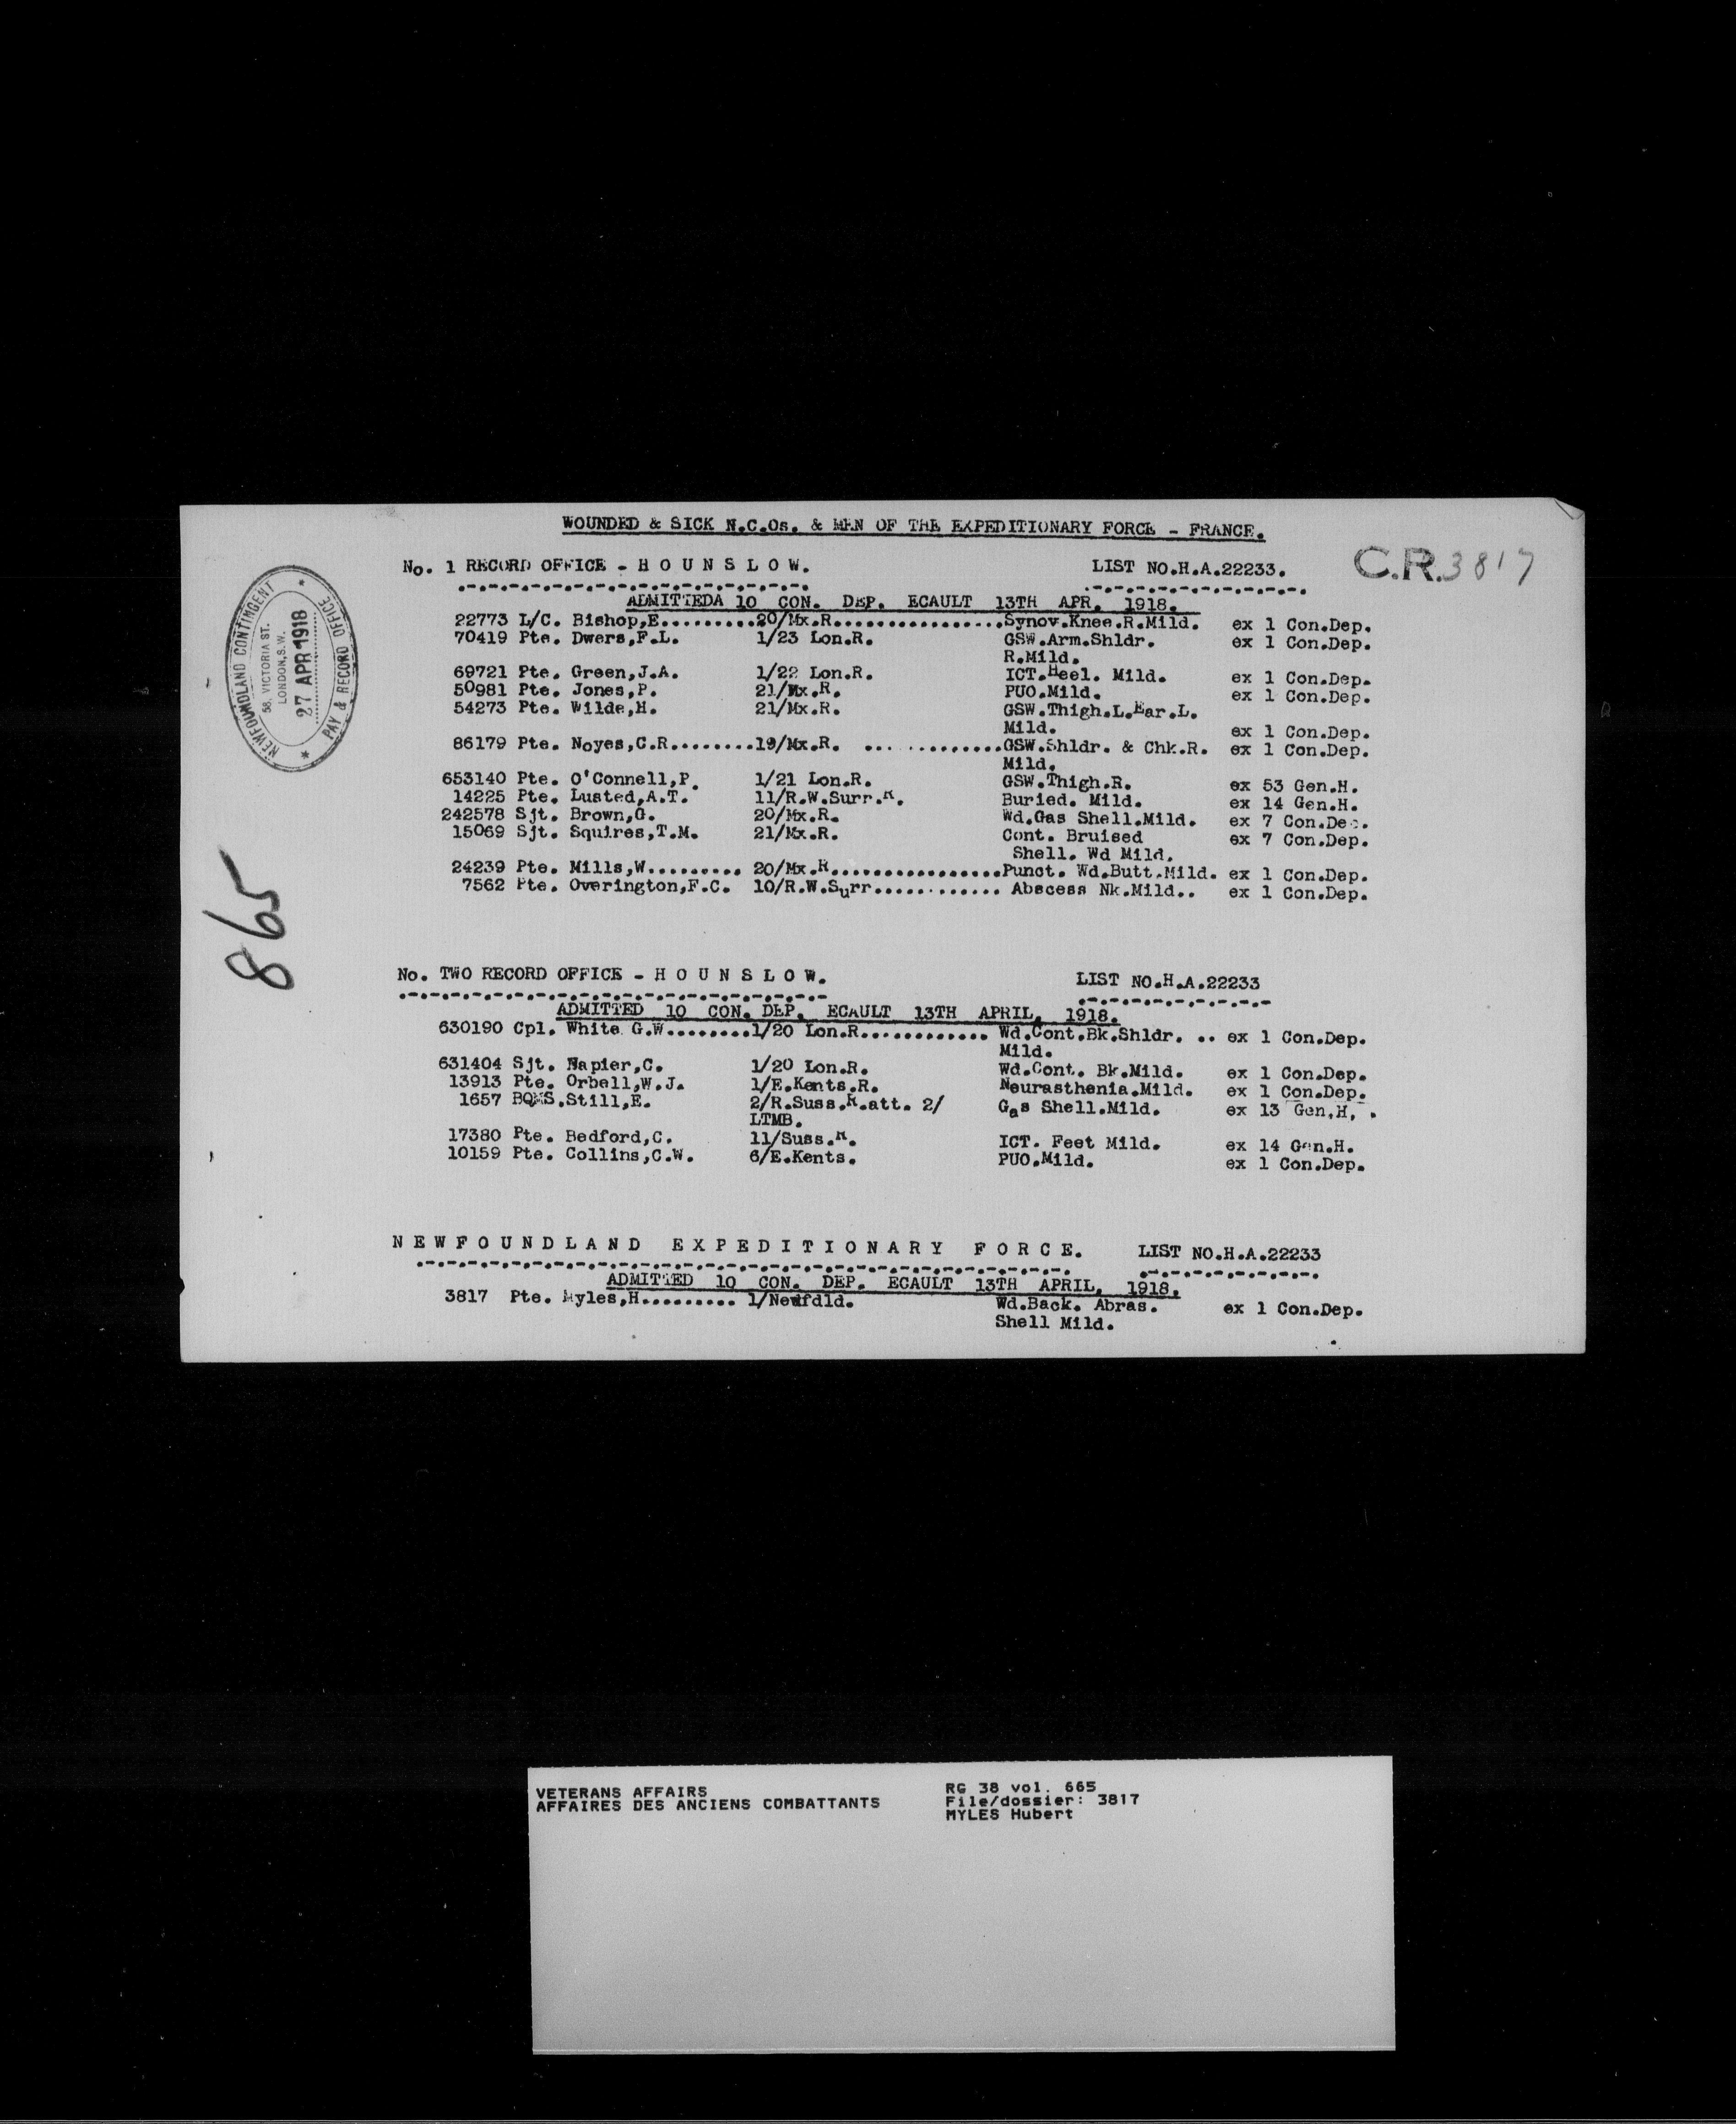 WOUNDED & SICK N.C.Os. & MEN OF THE EXPEDITIONARY FORCE - FRANCE.
No. 1 RECORD OFFICE - H O U N S L O W. LIST NO.H.A.22233. C.R. 3817
ADMITTEDA 10 CON. DEP. ECAULT 13TH APR. 1918.
22773 L/C. Bishop,E.........20/Mx.R................Synov.Knee.R.Mild. ex 1 Con.Dep.
70419 Pte. Dwers,F.L. 1/23 Lon.R. GSW.Arm.Shldr. ex 1 Con.Dep.
R.Mild.
69721 Pte. Green,J.A. 1/22 Lon.R. ICT.Heel. Mild. ex 1 Con.Dep.
50981 Pte. Jones,P. 21/Mx.R. PUO.Mild. ex 1 Con.Dep.
54273 Pte. Wilde,H. 21/Mx.R. GSW.Thigh.L.Ear.L.
Mild. ex 1 Con.Dep.
86179 Pte. Noyes,C.R........19/Mx.R. .............GSW.Shldr. & Chk.R. ex 1 Con.Dep.
Mild.
653140 Pte. O'Connell,P. 1/21 Lon.R. GSW.Thigh.R. ex 53 Gen.H.
14225 Pte. Lusted,A.T. 11/R.W.Surr.R. Buried. Mild. ex 14 Gen.H.
242578 Sjt. Brown,G. 20/Mx.R. Wd.Gas Shell.Mild. ex 7 Con.Dec.
15069 Sjt. Squires,T.M. 21/Mx.R. Cont. Bruised ex 7 Con.Dep.
Shell. Wd Mild.
24239 Pte. Mills,W......... 20/Mx.R................Punct. Wd.Butt.Mild. ex 1 Con.Dep.
7562 Pte. Overington,F.C. 10/R.W.Surr............ Abscess Nk.Mild.. ex 1 Con.Dep.
No. TWO RECORD OFFICE - H O U N S L O W. LIST NO.H.A.22233
ADMITTED 10 CON. DEP. ECAULT 13TH APRIL, 1918.
630190 Cpl. White G.W........1/20 Lon.R............ Wd.Cont.Bk.Shldr. .. ex 1 Con.Dep.
Mild.
631404 Sjt. Napier,C. 1/20 Lon.R. Wd.Cont. Bk.Mild. ex 1 Con.Dep.
13913 Pte. Orbell,W.J. 1/E.Kents.R. Neurasthenia.Mild. ex 1 Con.Dep.
1657 BQMS.Still,E. 2/R.Suss.R.att. 2/ Gas Shell.Mild. ex 13 Gen.H.
LTMB.
17380 Pte. Bedford,C. 11/Suss.R. ICT. Feet Mild. ex 14 Gen.H.
10159 Pte. Collins,C.W. 6/E.Kents. PUO.Mild. ex 1 Con.Dep.
N E W F O U N D L A N D E X P E D I T I O N A R Y F O R C E. LIST NO.H.A.22233
ADMITTED 10 CON. DEP. ECAULT 13TH APRIL, 1918.
3817 Pte. Myles,H......... 1/Newfdld. Wd.Back. Abras. ex 1 Con.Dep.
Shell Mild.
NEWFOUNDLAND CONTINGENT
58, VICTORIA ST.
LONDON, S.W.
27 APR 1918
PAY & RECORD OFFICE
865
VETERANS AFFAIRS
AFFAIRES DES ANCIENS COMBATTANTS
RG 38 vol. 665
File/dossier: 3817
MYLES Hubert